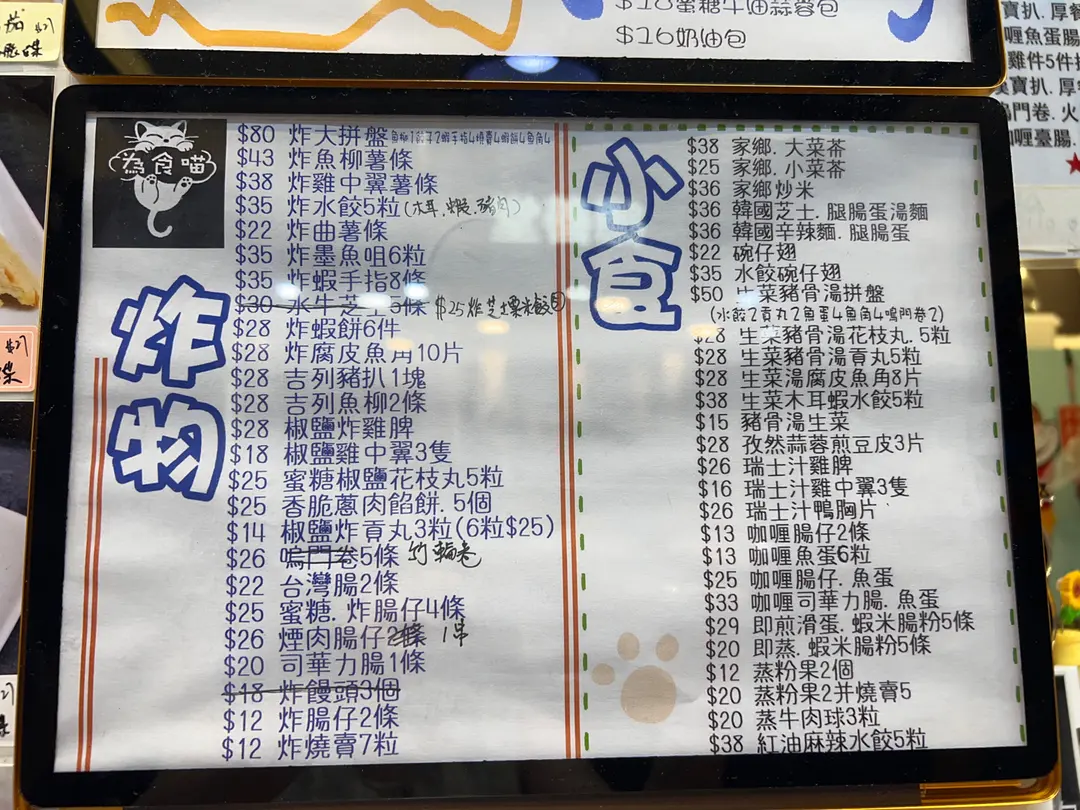 $16奶油包
為食喵
炸物
$80 炸大拼盤
$43 炸魚柳薯條
$38 炸雞中翼薯條
$35 炸水餃5粒(木耳.蝦.豬肉)
$22 炸曲薯條
$35 炸墨魚咀6粒
$35 炸蝦手指8條
$30 水牛芝士5條 $25炸芝士粟米餃
$28 炸蝦餅6件
$28 炸腐皮魚角10片
$28 吉列豬扒1塊
$28 吉列魚柳2條
$28 椒鹽炸雞脾
$18 椒鹽雞中翼3隻
$25 蜜糖椒鹽花枝丸5粒
$25 香脆蔥肉餡餅.5個
$14 椒鹽炸貢丸3粒(6粒$25)
$26 鳴門卷5條 竹輪卷
$22 台灣腸2條
$25 蜜糖.炸腸仔4條
$26 煙肉腸仔2條 1串
$20 司華力腸1條
$18 炸饅頭3個
$12 炸腸仔2條
$12 炸燒賣7粒
小食
$38 家鄉.大菜茶
$25 家鄉.小菜茶
$36 家鄉炒米
$36 韓國芝士.腿腸蛋湯麵
$36 韓國辛辣麵.腿腸蛋
$22 碗仔翅
$35 水餃碗仔翅
$50 生菜豬骨湯拼盤
(水餃2貢丸2魚蛋4魚角4鳴門卷2)
$28 生菜豬骨湯花枝丸.5粒
$28 生菜豬骨湯貢丸5粒
$28 生菜湯腐皮魚角8片
$38 生菜木耳蝦水餃5粒
$15 豬骨湯生菜
$28 孜然蒜蓉煎豆皮3片
$26 瑞士汁雞脾
$16 瑞士汁雞中翼3隻
$26 瑞士汁鴨胸片
$13 咖喱腸仔2條
$13 咖喱魚蛋6粒
$25 咖喱腸仔.魚蛋
$33 咖喱司華力腸.魚蛋
$29 即煎滑蛋.蝦米腸粉5條
$20 即蒸.蝦米腸粉5條
$12 蒸粉果2個
$20 蒸粉果2并燒賣5
$20 蒸牛肉球3粒
$38 紅油麻辣水餃5粒